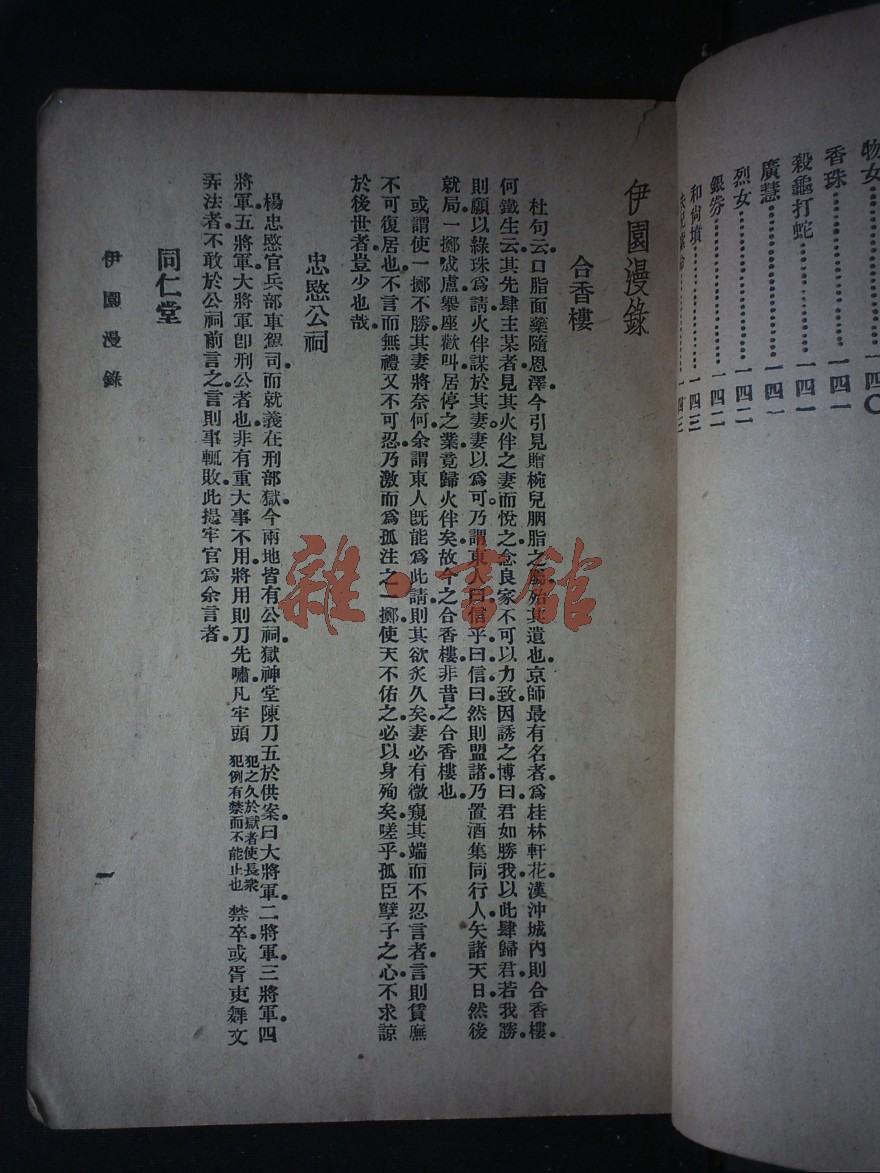 物女……………一四〇
香珠……………一四一
殺龜打蛇………一四一
廣慧……………一四一
烈女……………一四二
銀券……………一四二
和尚墳…………一四三
伊園漫錄
合香樓
杜句云口脂面藥隨恩澤今引見贈椀兒胭脂之屬殆其遺也京師最有名者為桂林軒花漢沖城內則合香樓
何鐵生云其先肆主某者見其火伴之妻而悅之念良家不可以力致因誘之博曰君如勝我以此肆歸君若我勝
則願以綠珠為請火伴謀於其妻妻以為可乃謂東人曰信乎曰信曰然則盟諸乃置酒集同行人矢諸天日然後
就局一擲成盧舉座歡叫居停之業竟歸火伴矣故今之合香樓非昔之合香樓也
或謂使一擲不勝其妻將奈何余謂東人既能為此請則其欲炙久矣妻必有微窺其端而不忍言者言則賃廡
不可復居也不言而無禮又不可忍乃激而為孤注之一擲使天不佑之必以身殉矣嗟乎孤臣孽子之心不求諒
於後世者豈少也哉
忠愍公祠
楊忠愍官兵部車駕司而就義在刑部獄今兩地皆有公祠獄神堂陳刀五於供案曰大將軍二將軍三將軍四
將軍五將軍大將軍卽刑公者也非有重大事不用將用則刀先嘯凡牢頭犯之久於獄者使長衆犯例有禁而不能止也禁卒或胥吏舞文
弄法者不敢於公祠前言之言則事輒敗此提牢官為余言者
同仁堂
伊園漫錄
一
雜·書館